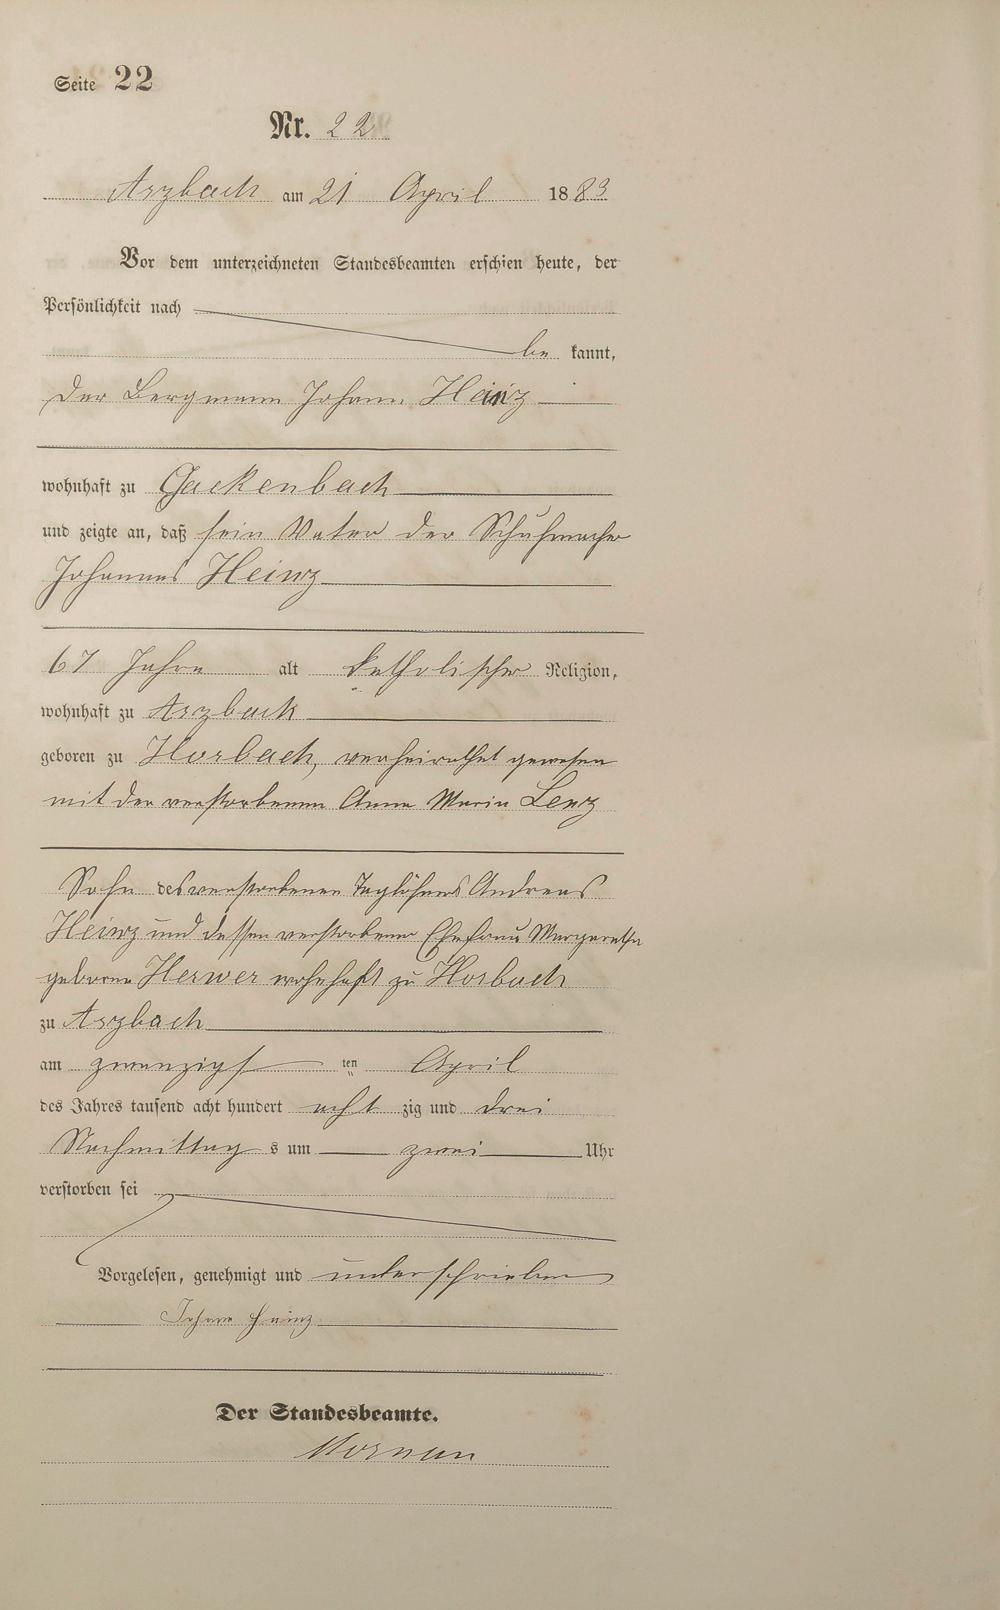 Seite 22
Nr. 22
Arzbach am 21 April 1883
Vor dem unterzeichneten Standesbeamten erschien heute, der
Persönlichkeit nach
be kannt,
der Bergmann Johann Heinz
wohnhaft zu Gackenbach
und zeigte an, daß sein Vater der Schuhmacher
Johannes Heinz
67 Jahre alt katholischer Religion,
wohnhaft zu Arzbach
geboren zu Horbach, verheirathet gewesen
mit der verstorbenen Anna Maria Lenz
Sohn des verstorbenen Taglöhners Andreas
Heinz und dessen verstorbener Ehefrau Margaretha
geborene Herwer wohnhaft zu Horbach
zu Arzbach
am zwanzigst ten April
des Jahres tausend acht hundert acht zig und drei
Nachmittag s um zwei Uhr
verstorben sei
Vorgelesen, genehmigt und unterschrieben
Johann Heinz
Der Standesbeamte.